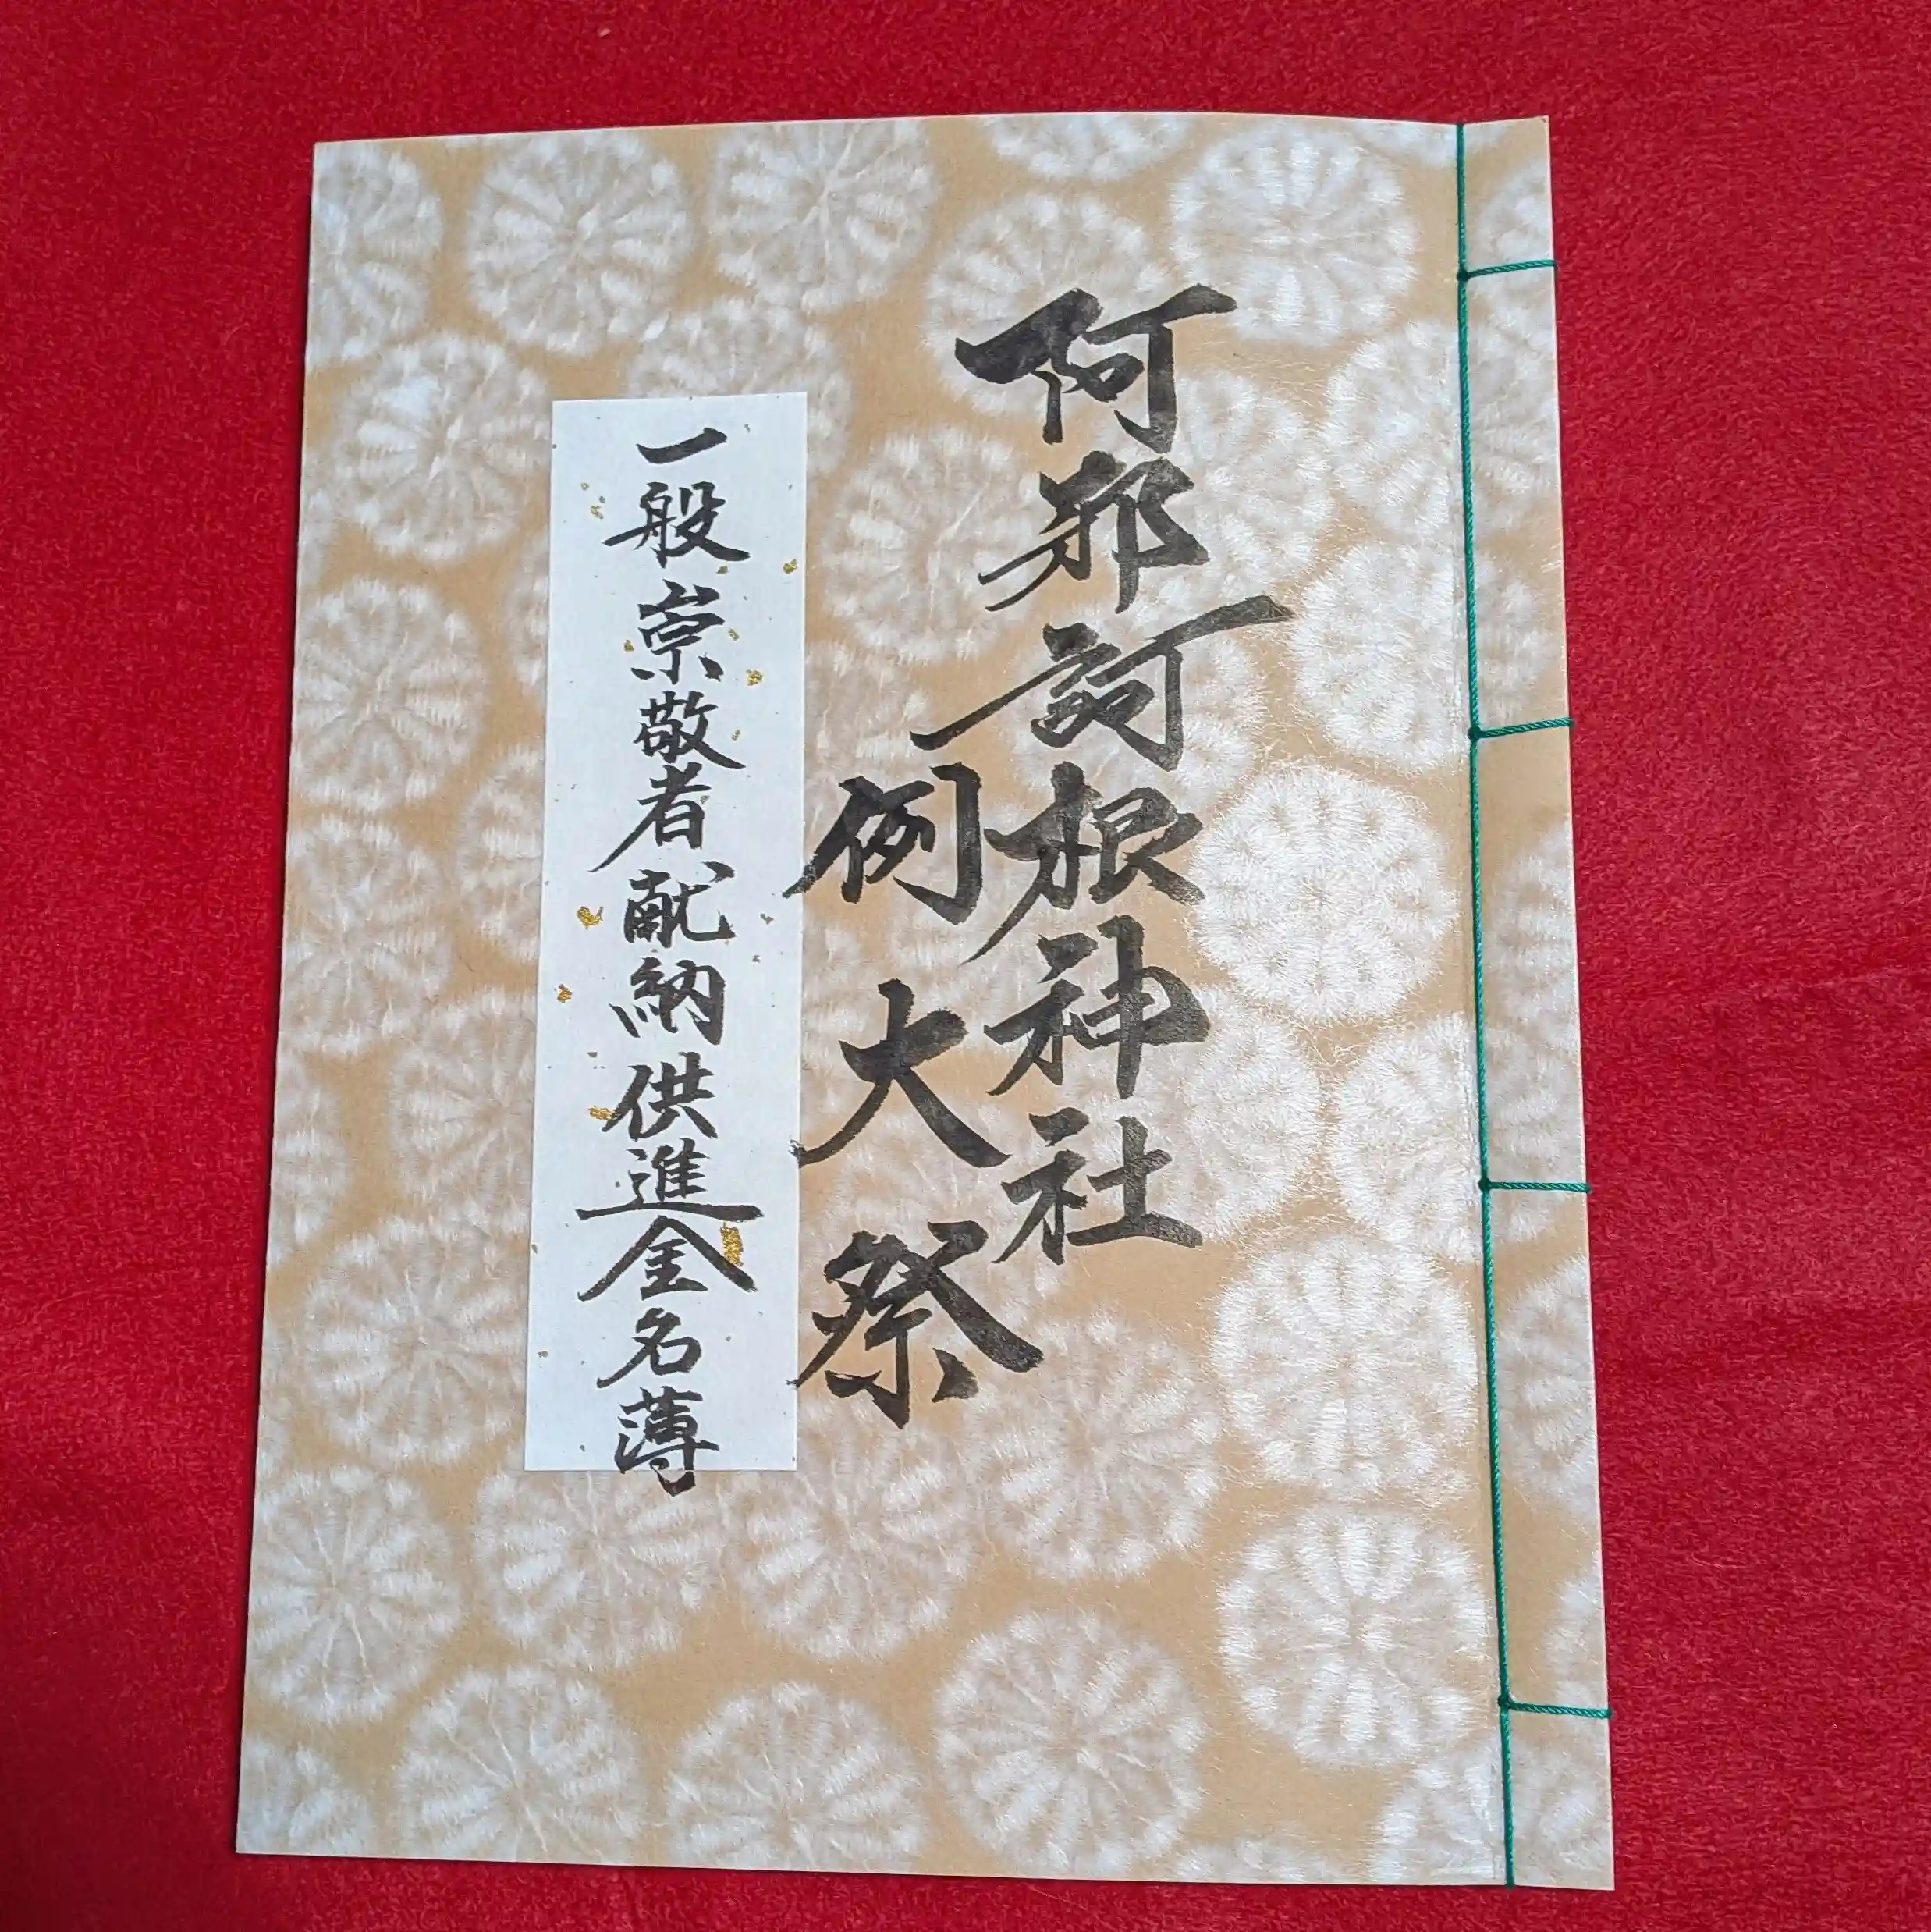 阿邪訶根神社
例大祭
一般崇敬者献納供進金名簿